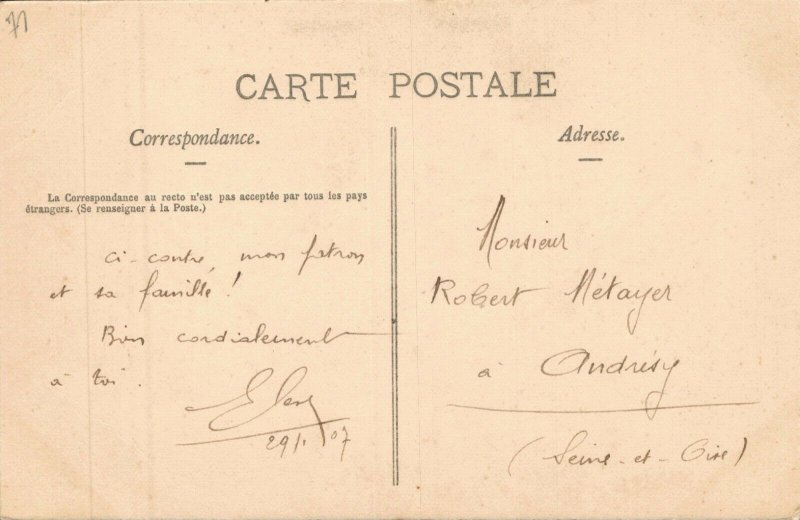 71
CARTE POSTALE
Correspondance.
La Correspondance au recto n'est pas acceptée par tous les pays
étrangers. (Se renseigner à la Poste.)
ci-contre, mon patron
et sa famille !
Bien cordialement
à toi.
29/1 07
Adresse.
Monsieur
Robert Métayer
à Andrésy
(Seine-et-Oise)